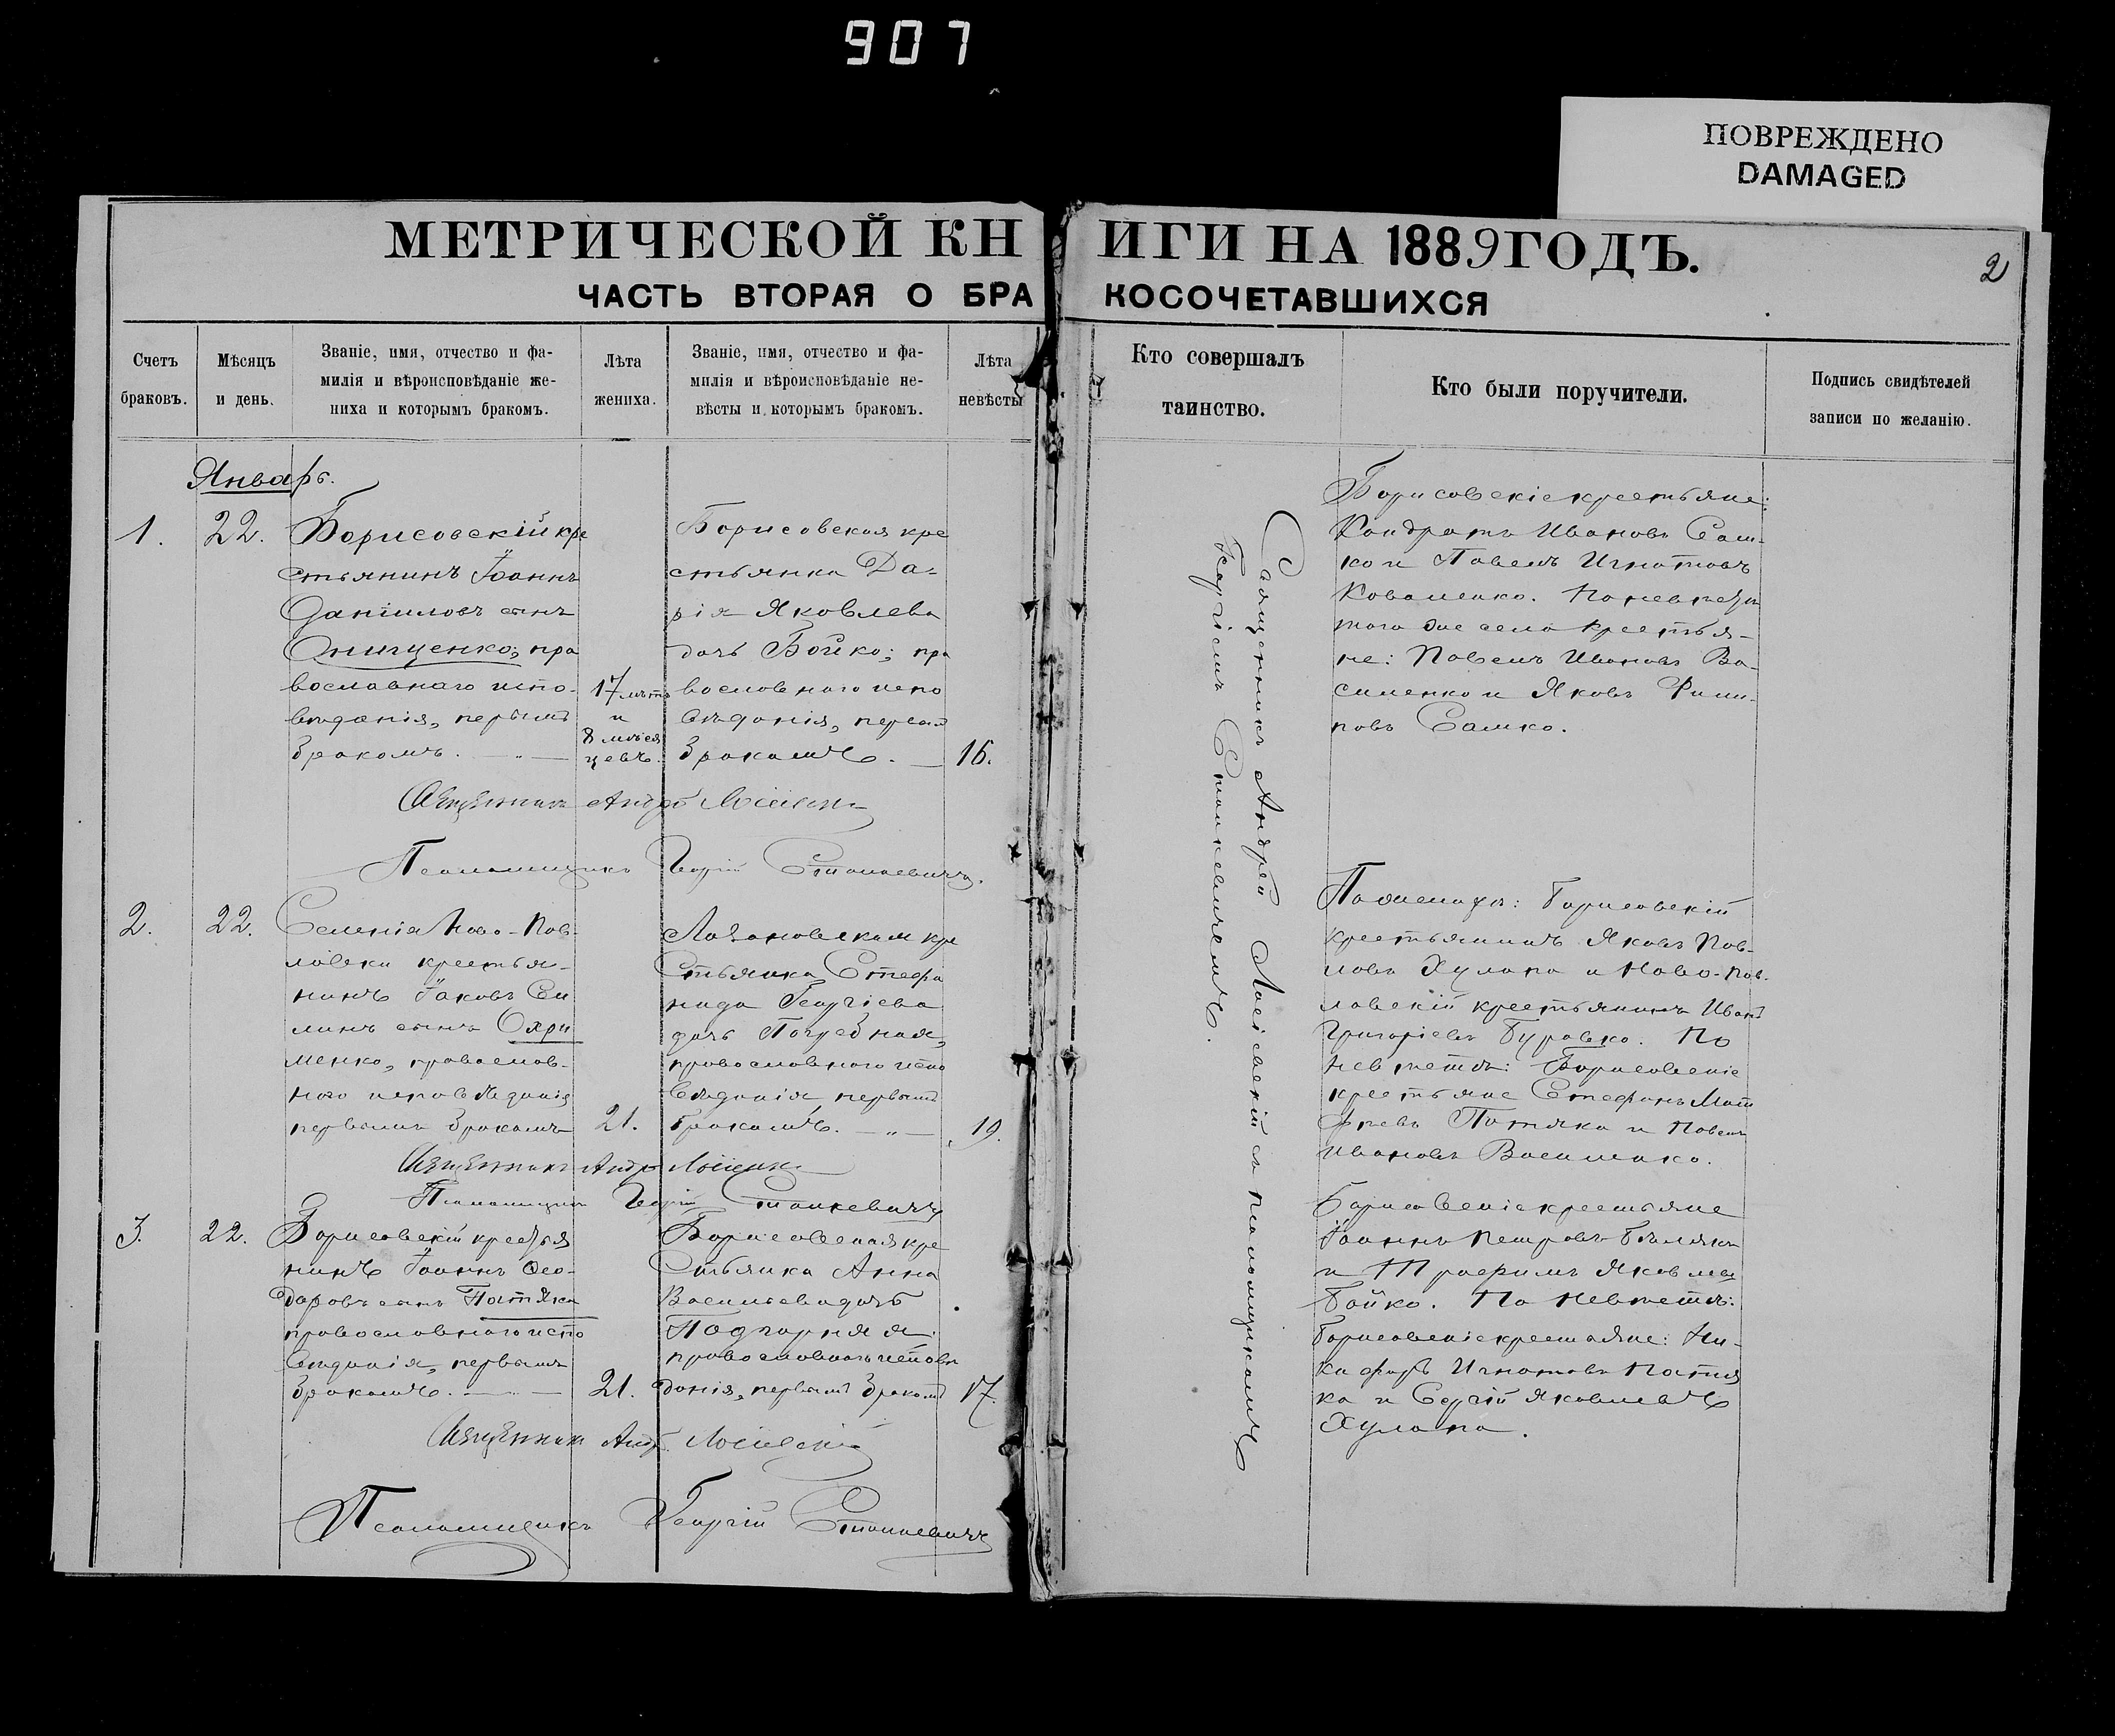 907
ПОВРЕЖДЕНО
DAMAGED
МЕТРИЧЕСКОЙ КНИГИ НА 1889 ГОДЪ.
2
ЧАСТЬ ВТОРАЯ О БРАКОСОЧЕТАВШИХСЯ
Счетъ
браковъ.
Мѣсяцъ
и день.
Званіе, имя, отчество и фа-
милія и вѣроисповѣданіе же-
ниха и которымъ бракомъ.
Лѣта
жениха.
Званіе, имя, отчество и фа-
милія и вѣроисповѣданіе не-
вѣсты и которымъ бракомъ.
Лѣта
невѣсты
Кто совершалъ
таинство.
Кто были поручители.
Подпись свидѣтелей
записи по желанію.
Январь.
1.
22.
Борисовскій кре
стьянинъ Іоаннъ
Даніиловъ сынъ
Онищенко, пра
вославнаго испо-
вѣданія, первымъ
бракомъ.
17 лѣтъ
и
8 мѣся
цевъ.
Борисовская кре
стьянка Да-
рія Яковлева
дочь Бойко; пра
вославнаго испо
вѣданія, первым
бракомъ.
16.
Священникъ Андрей
Псаломщикъ Георгій Станкевичъ.
Борисовскіе крестьяне:
Кондратъ Ивановъ Сам-
ко и Павелъ Игнатовъ
Коваленко. По невѣстѣ
того же села крестья-
не: Павелъ Ивановъ Ва-
силенко и Яковъ Фили-
повъ Самко.
Священникъ Андрей Лосіевскій съ псаломщикомъ
Георгіемъ Станкевичемъ.
2.
22.
Селенія Ново-Пав-
ловки крестья-
нинъ Іаковъ Си
линъ сынъ Охри
менко, православ-
наго исповѣданія
первымъ бракомъ
21.
Лозановская кре
стьянка Стефа
нида Георгіева
дочь Погребная,
православнаго испо
вѣданія первымъ
бракомъ.
19.
Священникъ Андрей
Псаломщикъ Георгій Станкевичъ
По жениху: Борисовскій
крестьянинъ Яковъ Пав-
ловъ Хулапа и Ново-Пав-
ловскій крестьянинъ Иванъ
Григоріевъ Буравко. По
невѣстѣ: Борисовскіе
крестьяне Стефанъ Мат
фѣевъ Потяка и Павелъ
Ивановъ Василенко.
3.
22.
Борисовскій крестья
нинъ Іоаннъ Ѳео-
доровъ сынъ Потяка
православнаго испо
вѣданія, первымъ
бракомъ.
21.
Борисовская кре
стьянка Анна
Васильева дочь
Подгорняя
православнаго исповѣ
данія, первымъ бракомъ
17.
Священникъ Андрей Лосіевскій
Псаломщикъ Георгій Станкевичъ
Борисовскіе крестьяне
Іоаннъ Петровъ
и Трофимъ Яковлевъ
Бойко. По невѣстѣ:
Борисовскіе крестьяне: Ни-
кифоръ Игнатовъ Потя
ка и Сергій Яковлевъ
Хулапа.